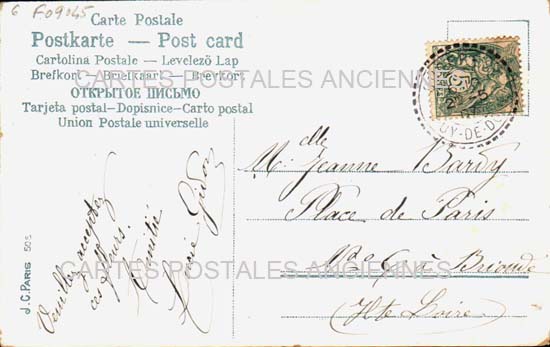 6 F09045
Carte Postale
Postkarte — Post card
Cartolina Postale — Levelező Lap
Brefkort — Briefkaart — Brevkort
ОТКРЫТОЕ ПИСЬМО
Tarjeta postal – Dopisnice – Carto postal
Union Postale universelle
CARTES POSTALES ANCIENNES
PUY-DE-DO
Veuillez acceptez
ces fleurs.
Amitié
Gidon
J.C. PARIS 505
Mlle Jeanne Bardy
Place de Paris
No 6 à Brioude
CARTES POSTALES ANCIENNES
(Hte Loire)